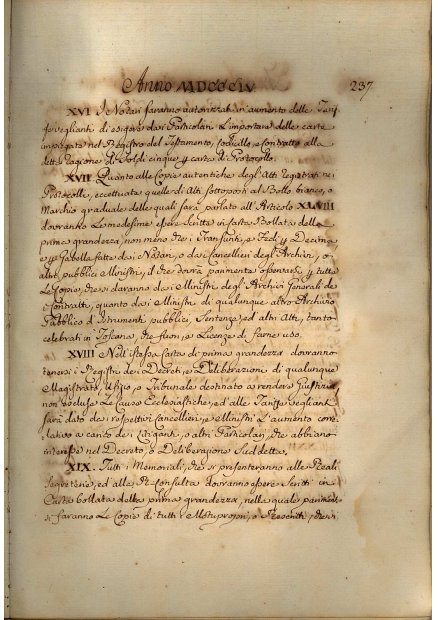 Anno MDCCCIV 237
XVI I Notari saranno autorizzati in aumento delle Tarif-
fe veglianti di esigere da i Particolari L'importare delle carte
impiegate nel Registro del Testamento, Codicillo, e Contratto alla
ragione di Soldi cinque p carta di Protocollo.
XVII. Quanto alle Copie autentiche degli Atti Registrati nei
Protocolli, eccettuate quelle di Atti sottoposti al Bollo bianco, o
Marchio graduale delle quali sarà parlato all'Articolo XLVIII
dovranno Le medesime essere scritte in carta Bollata della
prima grandezza, non meno che i Transunti, e Fedi p Decima
e p Gabella fatte da i Notari, o da i Cancellieri degl'Archivi, o
altri pubblici Ministri, il che dovrà parimente osservarsi p tutte
Le Copie, che si daranno da i Ministri degl'Archivi Generali de
Contratti, quanto da i Ministri di qualunque altro Archivio
Pubblico d'Istrumenti pubblici, Sentenze, ed altri Atti, tanto
celebrati in Toscana, che fuori, e Licenze di farne uso.
XVIII Nell'istessa carta di prima grandezza dovranno
tenersi i Registri dei Decreti, e Deliberazioni di qualunque
Magistrato, Ufizio, e Tribunale destinato a rendere Giustizia
non escluse Le Cause Ecclesiastiche, ed alle Tariffe veglianti
sarà dato da i respettivi Cancellieri, e Ministri L'aumento corre-
lativo a carico de i Litiganti, o altri Particolari, che abbiano
interesse nel Decreto, o Deliberazione Suddetta.
XIX. Tutti i Memoriali, che si presenteranno alle Reali
Segreterie, ed alla R. Consulta dovranno essere Scritti in
Carta bollata della prima grandezza, nella quale parimente
si faranno Le Copie di tutti i Motuproprj, o Rescritti, che si